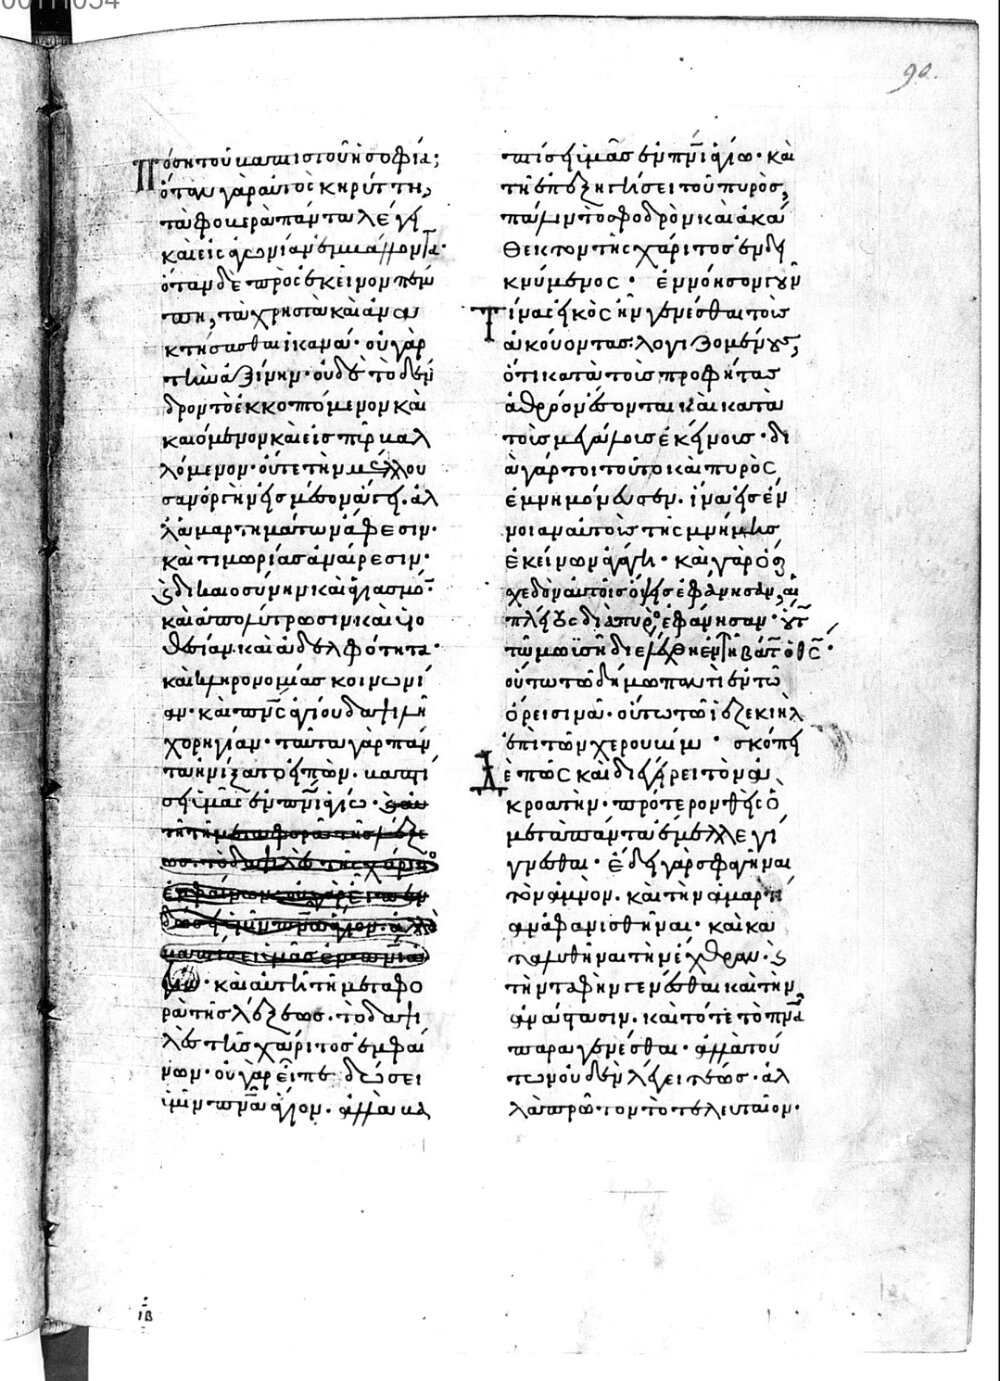 90.
Πόση τοῦ βαπτιστοῦ ἡ σοφία;
ὅταν γὰρ αὐτὸς κηρύττη,
τὰ φοβερὰ πάντα λέγει
καὶ εἰς ἀγωνίαν ἐμβάλλοντα·
ὅταν δὲ πρὸς ἐκεῖνον πέμ
πη, τὰ χρηστὰ καὶ ἀνα
κτήσασθαι ἱκανά· οὐ γὰρ
τὴν ἀξίνην· οὐδὲ τὸ δέν
δρον τὸ ἐκκοπτόμενον καὶ
καιόμενον καὶ εἰς πῦρ βαλ
λόμενον· οὔτε τὴν μέλλου
σαν ὀργὴν εἰς μέσον ἄγει· ἀλ
λ' ἁμαρτημάτων ἄφεσιν·
καὶ τιμωρίας ἀναίρεσιν·
ϗ δικαιοσύνην καὶ ἁγιασμό̅·
καὶ ἀπολύτρωσιν καὶ υἱο
θεσίαν· καὶ ἀδελφότητα·
καὶ κληρονομίας κοινωνί
αν· καὶ πν̅ς ἁγίου δαψιλῆ
χορηγίαν· ταῦτα γὰρ πάν
τα ἠνίξατο εἰπών· βαπτί
σει ὑμᾶς ἐν πν̅ι ἁγίω·
καὶ αὐτῆ τῆ μεταφο
ρᾶ τῆς λέξεως· τὸ δαψι
λὲς τῆς χάριτος ἐμφαί
νων· οὐ γὰρ εἶπε δώσει
ὑμῖν πν̅α ἅγιον· ἀλλὰ βα
πτίσει ὑμᾶς ἐν πν̅ι ἁγίω· καὶ
τῆ ἐπεξηγήσει τοῦ πυρὸς,
πάλιν τὸ σφοδρὸν καὶ ἀκά
θεκτον τῆς χάριτος ἐνδει
κνύμενος· ἐννόησον γοῦν
τίνας εἰκὸς ἦν γενέσθαι τοὺς
ἀκούοντας λογιζομένους,
ὅτι κατὰ τοὺς προφήτας
ἀθρόον ἔσονται καὶ κατὰ
τοὺς μεγάλους ἐκείνους· δι
ὰ γάρ τοι τοῦτο καὶ πυρὸς
ἐμνημόνευσεν· ἵνα εἰς ἔν
νοιαν αὐτοὺς τῆς μνήμης
ἐκείνων ἀγάγη· καὶ γὰρ ὅσ
χεδὸν αὐτοῖς ὄψεις ἐφάνησαν, αἱ
πλείους διὰ πυρὸς ἐφάνησαν· οὕτ
τῶ μωϋσῆ διελέχθη ἐν τῆ βάτω ὁ θ̅ς·
οὕτω τῶ δήμω παντὶ ἐν τῶ
ὄρει σινᾶ· οὕτω τῶ ἰεζεκιὴλ
ἐπὶ τῶν χερουβίμ· σκόπει
δὲ πῶς καὶ διεγείρει τὸν ἀ
κροατὴν· πρότερον θεὶς ὃ
μετὰ πάντα ἔμελλε γί
γνεσθαι· ἔδει γὰρ σφαγῆναι
τὸν ἀμνὸν· καὶ τὴν ἁμαρτί
αν ἀφανισθῆναι· καὶ κα
ταλυθῆναι τὴν ἔχθραν· ϗ
τὴν ταφὴν γενέσθαι καὶ τὴν
ἀνάστασιν· καὶ τότε τὸ πν̅α
παραγενέσθαι· ἀλλὰ τού
των οὐδὲν λέγει τέως· ἀλ
λὰ πρῶτον τὸ τελευταῖον·
ιβ